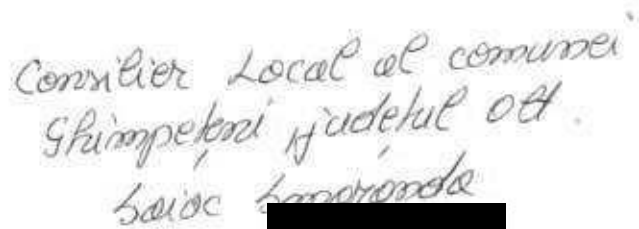 Consilier Local al comunei
Ghimpețeni județul Olt.
Soioc Smaranda